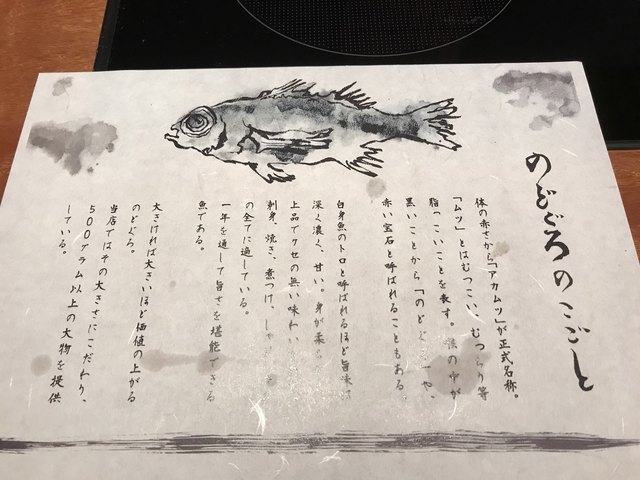 のどぐろのこごと
体の赤さから「アカムツ」が正式名称。
「ムツ」とはむつこい、むつっり等
脂っこいことを表す。 の中が
黒いことから「のど や、
赤い宝石と呼ばれることもある。
白身魚のトロと呼ばれるほど旨味は
深く濃く、甘い。身が柔ら
上品でクセの無い味わい
刺身、焼き、煮つけ、しゃ
の全てに適している。
一年を通して旨さを堪能できる
魚である。
大きければ大きいほど価値の上がる
のどぐろ。
当店ではその大きさにこだわり、
500グラム以上の大物を提供
している。